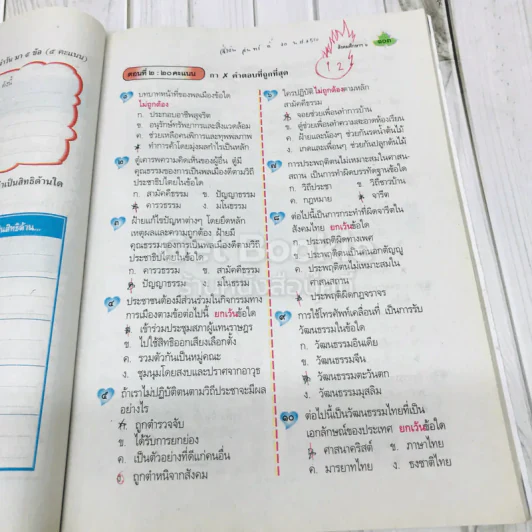 สังคมศึกษาฯ
๒๐๓
ตอนที่ ๒ : ๒๐ คะแนน กา ✗ คำตอบที่ถูกที่สุด
๑
บทบาทหน้าที่ของพลเมืองข้อใด
ไม่ถูกต้อง
ก. ประกอบอาชีพสุจริต
ข. อนุรักษ์ทรัพยากรและสิ่งแวดล้อม
ค. ช่วยเหลือคนพิการและทุพพลภาพ
ทำการค้าโดยมุ่งผลกำไรเป็นหลัก
๒
ตู่เคารพความคิดเห็นของผู้อื่น ตู่มี
คุณธรรมของการเป็นพลเมืองดีตามวิถี
ประชาธิปไตยในข้อใด
ก. สามัคคีธรรม ข. ปัญญาธรรม
คารวธรรม ง. มโนธรรม
๓
ฝ้ายแก้ไขปัญหาต่างๆ โดยยึดหลัก
เหตุผลและความถูกต้อง ฝ้ายมี
คุณธรรมของการเป็นพลเมืองดีตามวิถี
ประชาธิปไตยในข้อใด
ก. คารวธรรม ข. สามัคคีธรรม
ปัญญาธรรม ง. มโนธรรม
๔
ประชาชนต้องมีส่วนร่วมในกิจกรรมทาง
การเมืองตามข้อต่อไปนี้ ยกเว้นข้อใด
เข้าร่วมประชุมสภาผู้แทนราษฎร
ข. ไปใช้สิทธิออกเสียงเลือกตั้ง
ค. รวมตัวกันเป็นหมู่คณะ
ง. ชุมนุมโดยสงบและปราศจากอาวุธ
๕
ถ้าเราไม่ปฏิบัติตนตามวิถีประชาจะมีผล
อย่างไร
ถูกตำรวจจับ
ข. ได้รับการยกย่อง
ค. เป็นตัวอย่างที่ดีแก่คนอื่น
ง. ถูกตำหนิจากสังคม
ใครปฏิบัติไม่ถูกต้องตามหลัก
สามัคคีธรรม
จอยช่วยเพื่อนทำการบ้าน
ข. ตู่ช่วยเพื่อนทำความสะอาดห้องเรียน
ค. ฝ้ายและน้องๆ ช่วยกันรดน้ำต้นไม้
ง. เกดและเพื่อนๆ ช่วยกันปลูกต้นไม้
๗
การประพฤติตนไม่เหมาะสมในศาสน-
สถาน เป็นการทำผิดบรรทัดฐานข้อใด
ก. วิถีประชา ข. วิถีชาวบ้าน
ค. กฎหมาย จารีต
๘
ต่อไปนี้เป็นการกระทำที่ผิดจารีตใน
สังคมไทย ยกเว้นข้อใด
ก. ประพฤติผิดทางเพศ
ข. ประพฤติตนเป็นคนอกตัญญู
ค. ประพฤติตนไม่เหมาะสมใน
ศาสนสถาน
ประพฤติผิดกฎจราจร
๙
การใช้โทรศัพท์เคลื่อนที่ เป็นการรับ
วัฒนธรรมในข้อใด
ก. วัฒนธรรมอินเดีย
ข. วัฒนธรรมจีน
วัฒนธรรมตะวันตก
ง. วัฒนธรรมมุสลิม
๑๐
ต่อไปนี้เป็นวัฒนธรรมไทยที่เป็น
เอกลักษณ์ของประเทศ ยกเว้นข้อใด
ศาสนาคริสต์ ข. ภาษาไทย
ค. มารยาทไทย ง. ธงชาติไทย